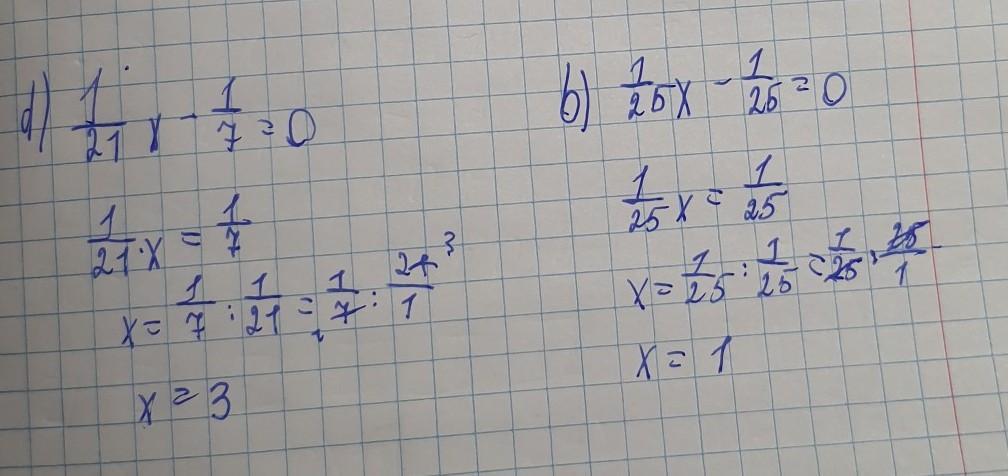 d) 1/21 x - 1/7 = 0
1/21 · x = 1/7
x = 1/7 : 1/21 = 1/7 : 21/1 3
1
x = 3
b) 1/25 x - 1/25 = 0
1/25 x = 1/25
x = 1/25 : 1/25 = 1/25 · 25/1
x = 1